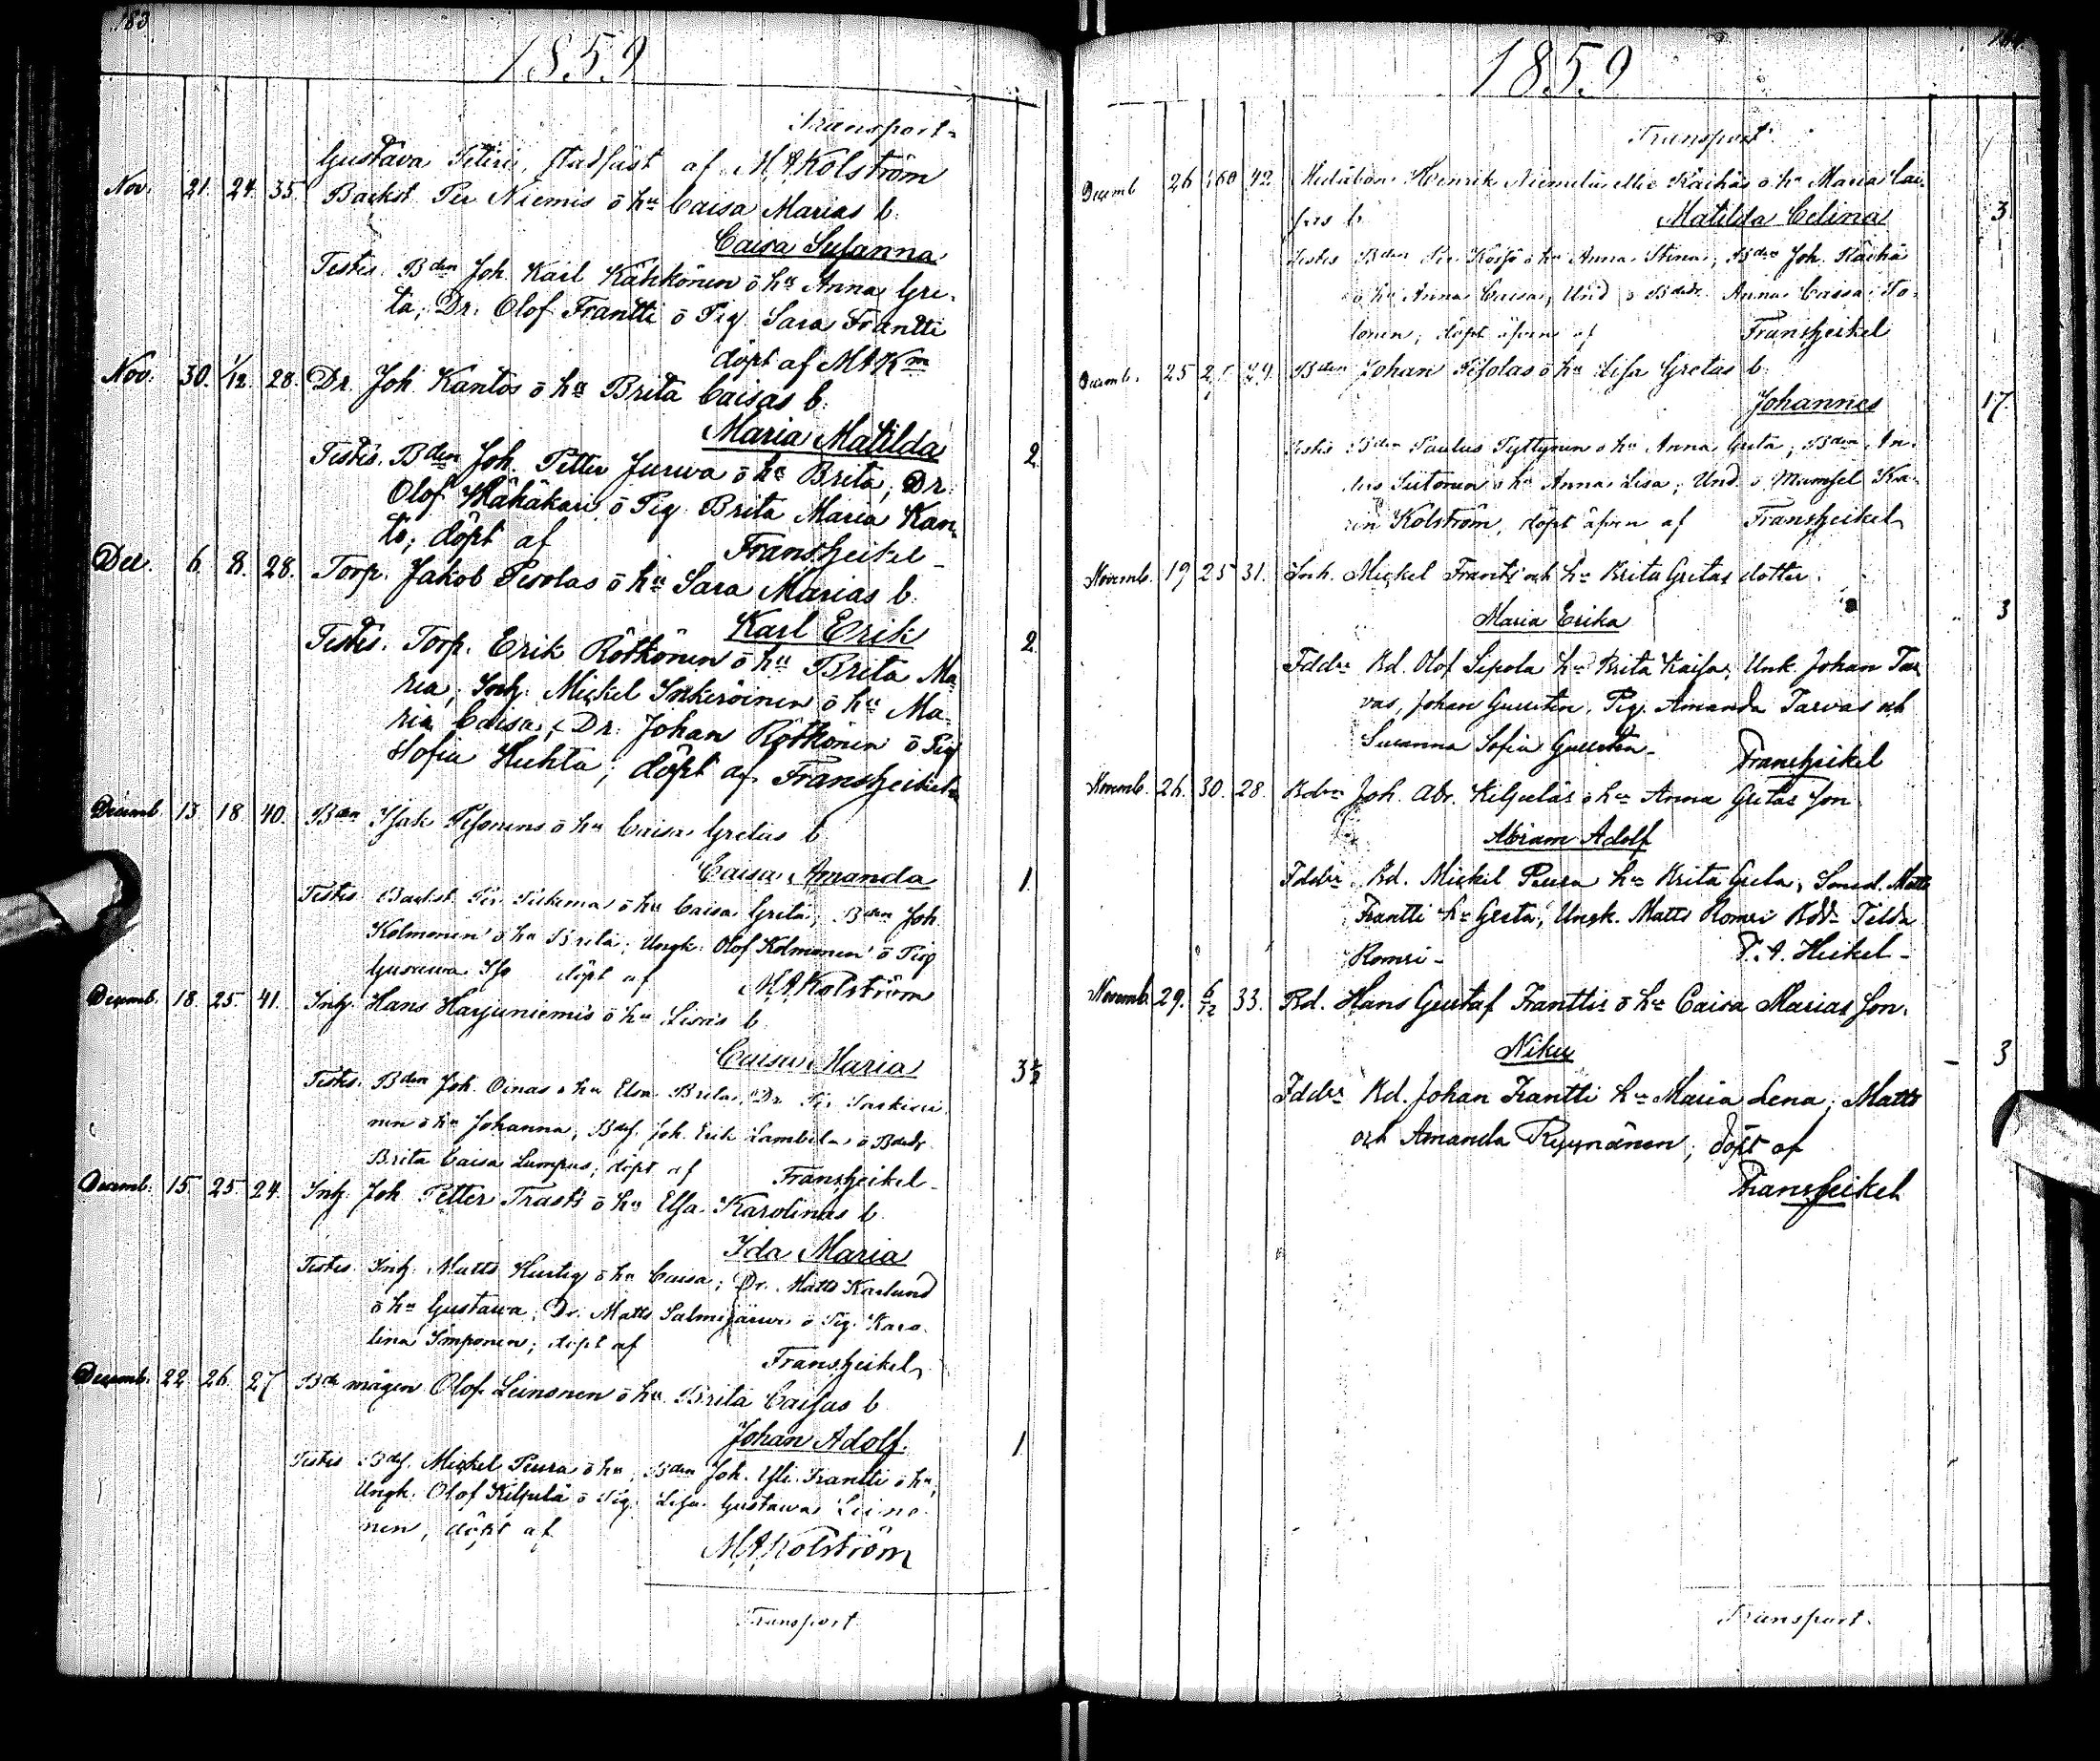 183
1859
Transport
Gustava Piteri, stadfäst af M.A.Kolström
Nov. 21. 24. 35. Backst. Per Niemis o hu Caisa Marias b.
Caisa Susanna
Testes. Bden Joh. Karl Kähkönen o hu Anna Gre-
ta; Dr. Olof Frantti o Pig. Sara Frantti
döpt af MAKm
Nov. 30. 1/12. 28. Dr. Joh Kantos o hu Brita Caisas b.
Maria Matilda 2
Testes. Bden Joh. Petter Jurwa o hu Brita; Dr.
Olof Mähäkari o Pig. Brita Maria Kan-
to; döpt af Frans Heikel
Dec. 6. 8. 28. Torp. Jakob Perolas o hu Sara Marias b.
Karl Erik 2
Testes. Torp. Erik Rötkönen o hu Brita Ma-
ria; Inh. Mickel Inkeröinen o hu Ma-
ria Caisa; Dr. Johan Rötkönen o Pig
Sofia Huhta; döpt af Frans Heikel
Decemb 13. 18. 40. Bden Isak Pesonens o hu Caisa Gretas b.
Caisa Amanda 1.
Testes Backst. Per o hu Caisa Greta; Bden Joh.
Kolmonen o hu Brita; Ungk. Olof Kolmonen o Pig
Gustawa Iso döpt af M.A.Kolström
Decemb. 18. 25. 41. Inh. Hans Harjuniemis o hu Lisas b.
Caisa Maria 3 1/2
Testes. Bden Joh. Oinas o hu Elsa Brita, Dr. Per
nen o hu Johanna, Joh. Erik Lambela o
Brita Caisa Lumpus; döpt af Frans Heikel
Decemb: 15 25 24. Inh. Joh Petter Trasts o hu Elsa Karolinas b.
Ida Maria
Testes Inh. Matts Hurtig o hu Caisa; Dr. Matts Karlund
o hu Gustawa; Dr. Matts Salmijärwi o Pig. Karo-
lina Imponen; döpt af Frans Heikel
Decemb. 22. 26. 27 mågen Olof Leinonen o hu Brita Caisas b.
Johan Adolf. 1
Testes Mickel Peura o hu, Bden Joh. Yli Frantti o hu,
Ungk. Olof Kilpulä o Pig. Lisa Gustawa Leino-
nen, döpt af M.A.Kolström
Transport
1859
Transport
Decemb 26 42 Henrik Niemelä eller Räihäs o hu Maria Cai-
sas b. Matilda Celina 3
Testes Bden Per o hu Anna Stina; Bden Joh. Räihä
o hu Anna Caisa, Und o Anna Caisa To-
lonen; döpt äfven af Frans Heikel
Decemb. 25 29. Bden Johan o hu Lisa Gretas b.
Johannes 17.
Testes Bden Paulus Tyttynen o hu Anna Greta; Bden An-
ders Siitonen o hu Anna Lisa; Und o Mamsel Ka-
rin Kolström, döpt äfven af Frans Heikel
Novemb. 19 25 31. Inh. Mickel Frantts och hu Brita Gretas dotter.
Maria Erika 3
Fddr Bd. Olof Sipola hu Brita Kaisa, Unk. Johan Tar
vas, Johan Pig. Amanda Tarvas och
Susanna Sofia Frans Heikel
Novemb. 26. 30. 28. Bdn Joh. Abr. Kilpeläs o hu Anna Gretas son
Abram Adolf
Fddr. Bd. Mickel Peura hu Brita Greta, Smed. Matts
Frantti hu Greta, Ungk. Matts Romsi Tilda
Romsi F.A. Heikel
Novemb 29. 6/12 33. Bd. Hans Gustaf Franttis o hu Caisa Marias son.
Niku 3
Fddr Bd. Johan Frantti hu Maria Lena; Matts
och Amanda Ryynänen; döpt af
Frans Heikel
Transport.